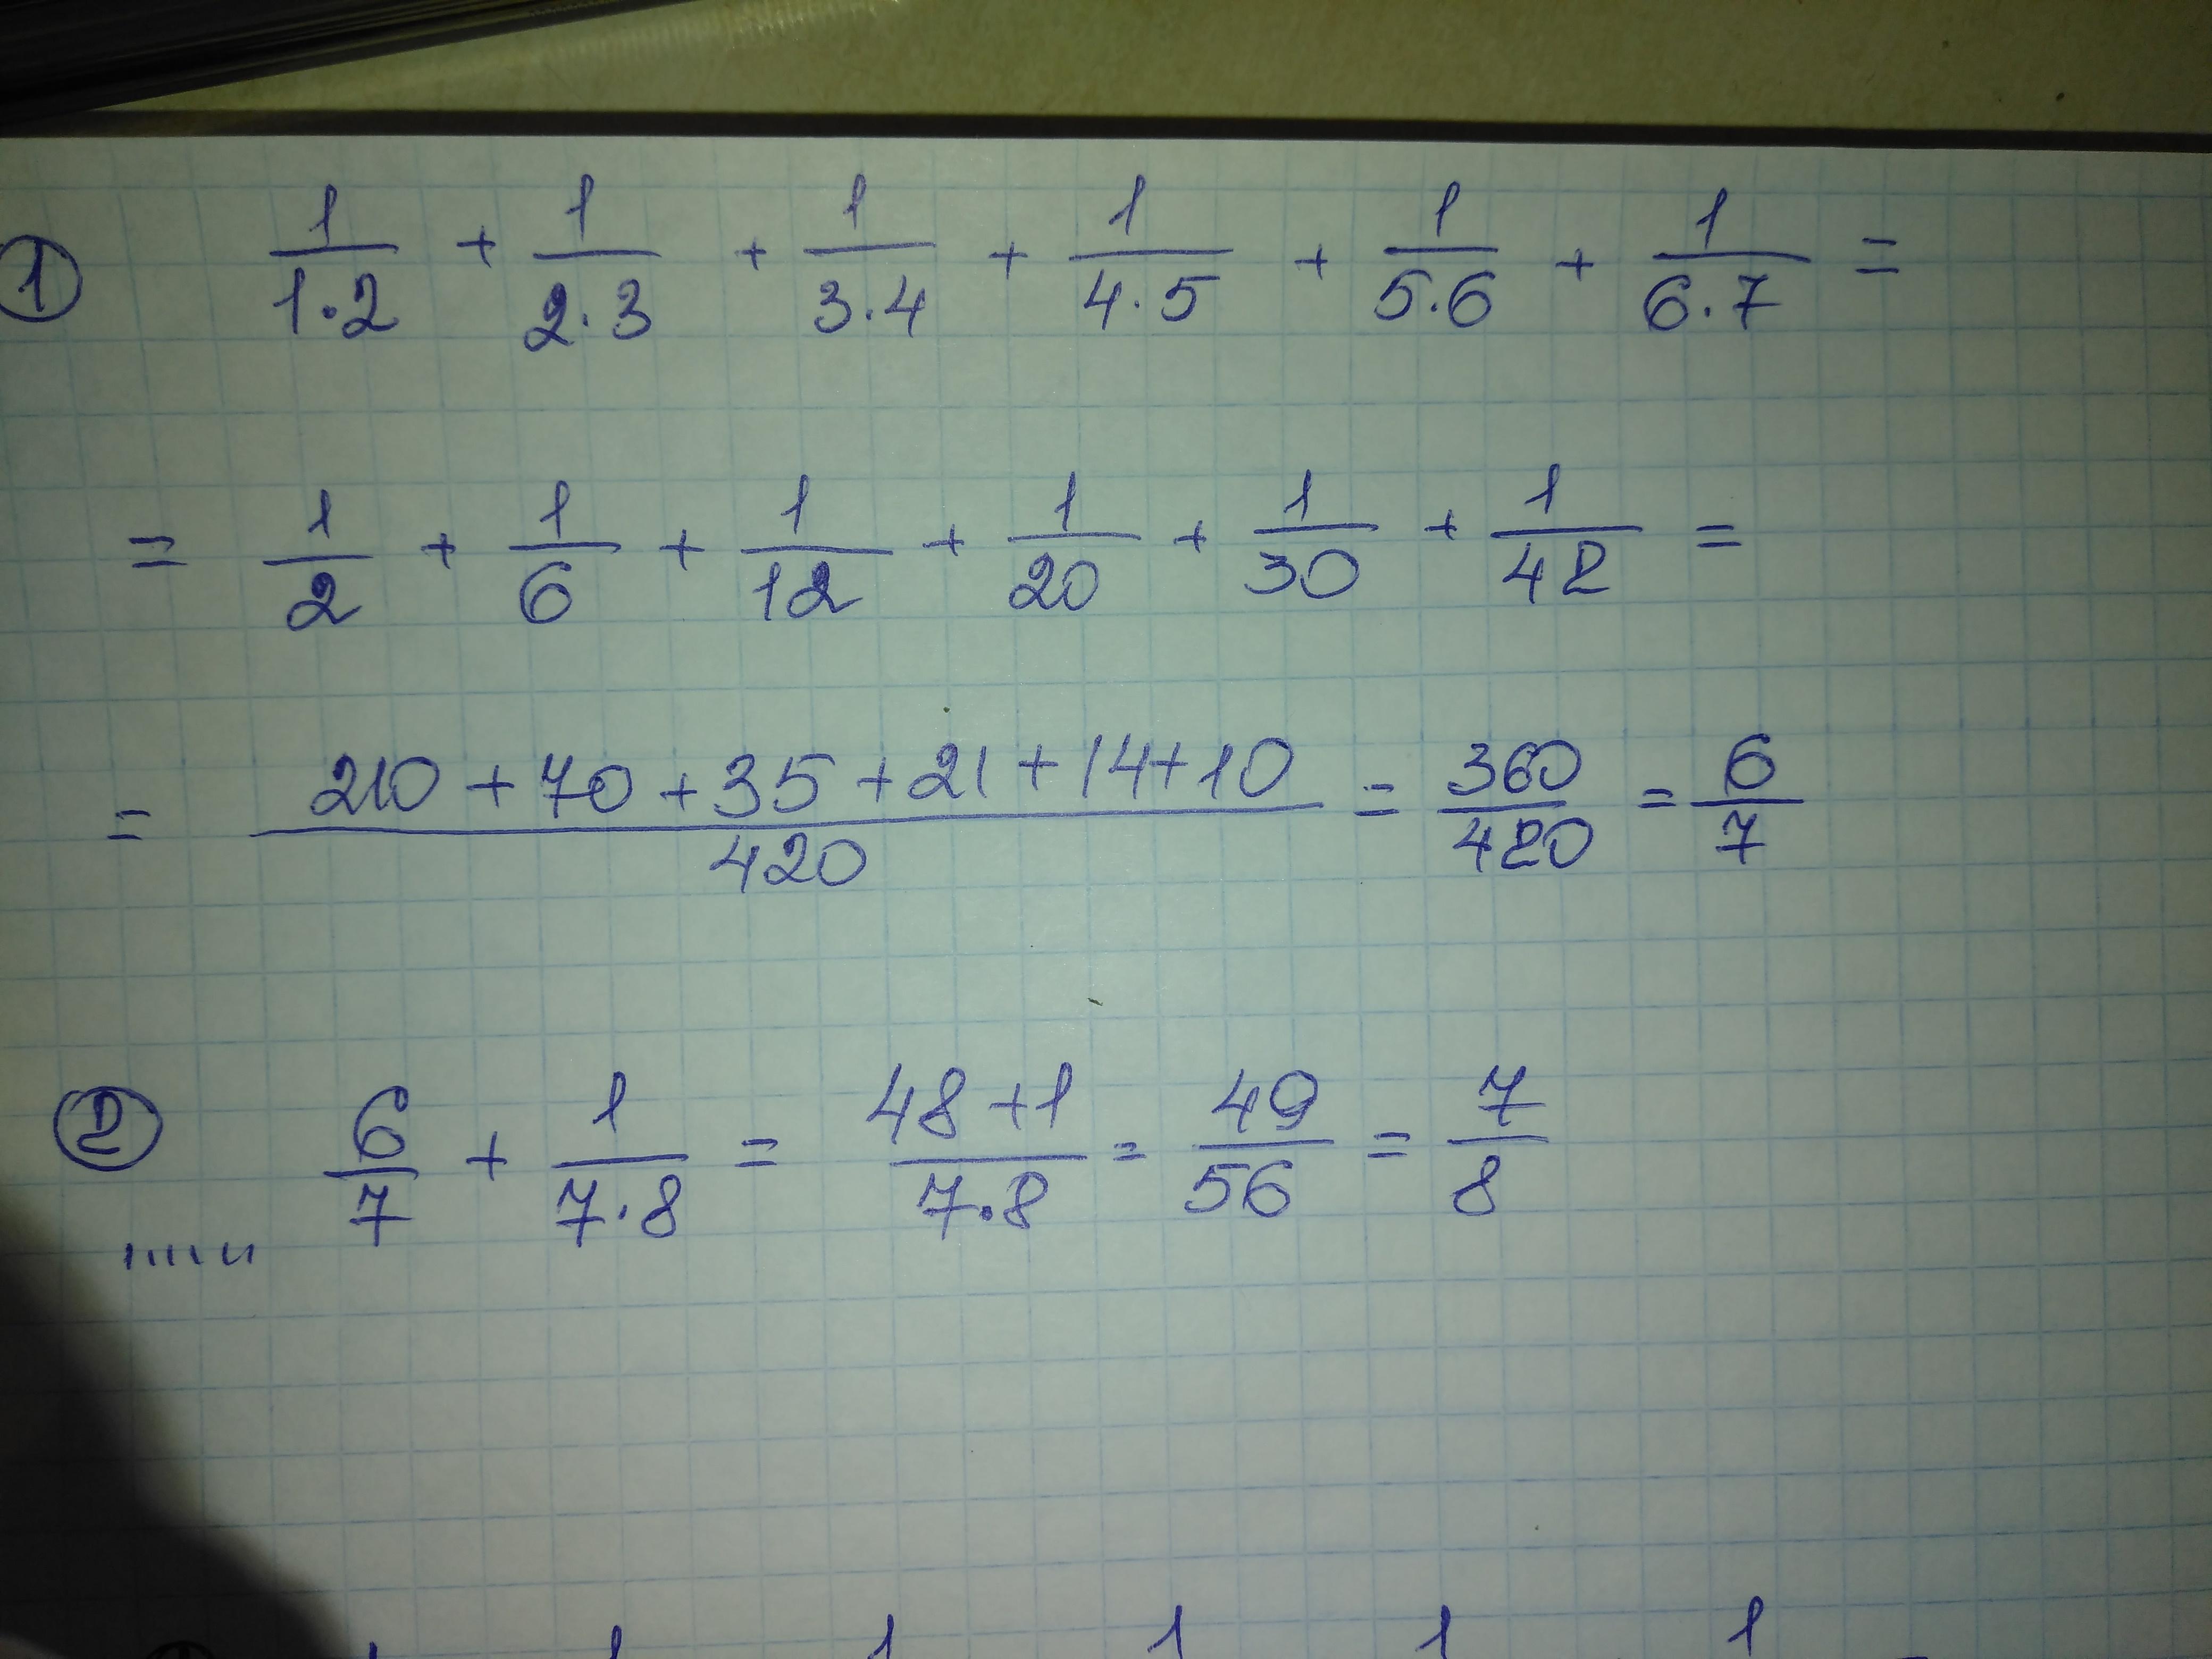 ① 1/(1·2) + 1/(2·3) + 1/(3·4) + 1/(4·5) + 1/(5·6) + 1/(6·7) =
= 1/2 + 1/6 + 1/12 + 1/20 + 1/30 + 1/42 =
= (210 + 70 + 35 + 21 + 14 + 10)/420 = 360/420 = 6/7
② 6/7 + 1/(7·8) = (48 + 1)/(7·8) = 49/56 = 7/8
......
1 1 1 1 1